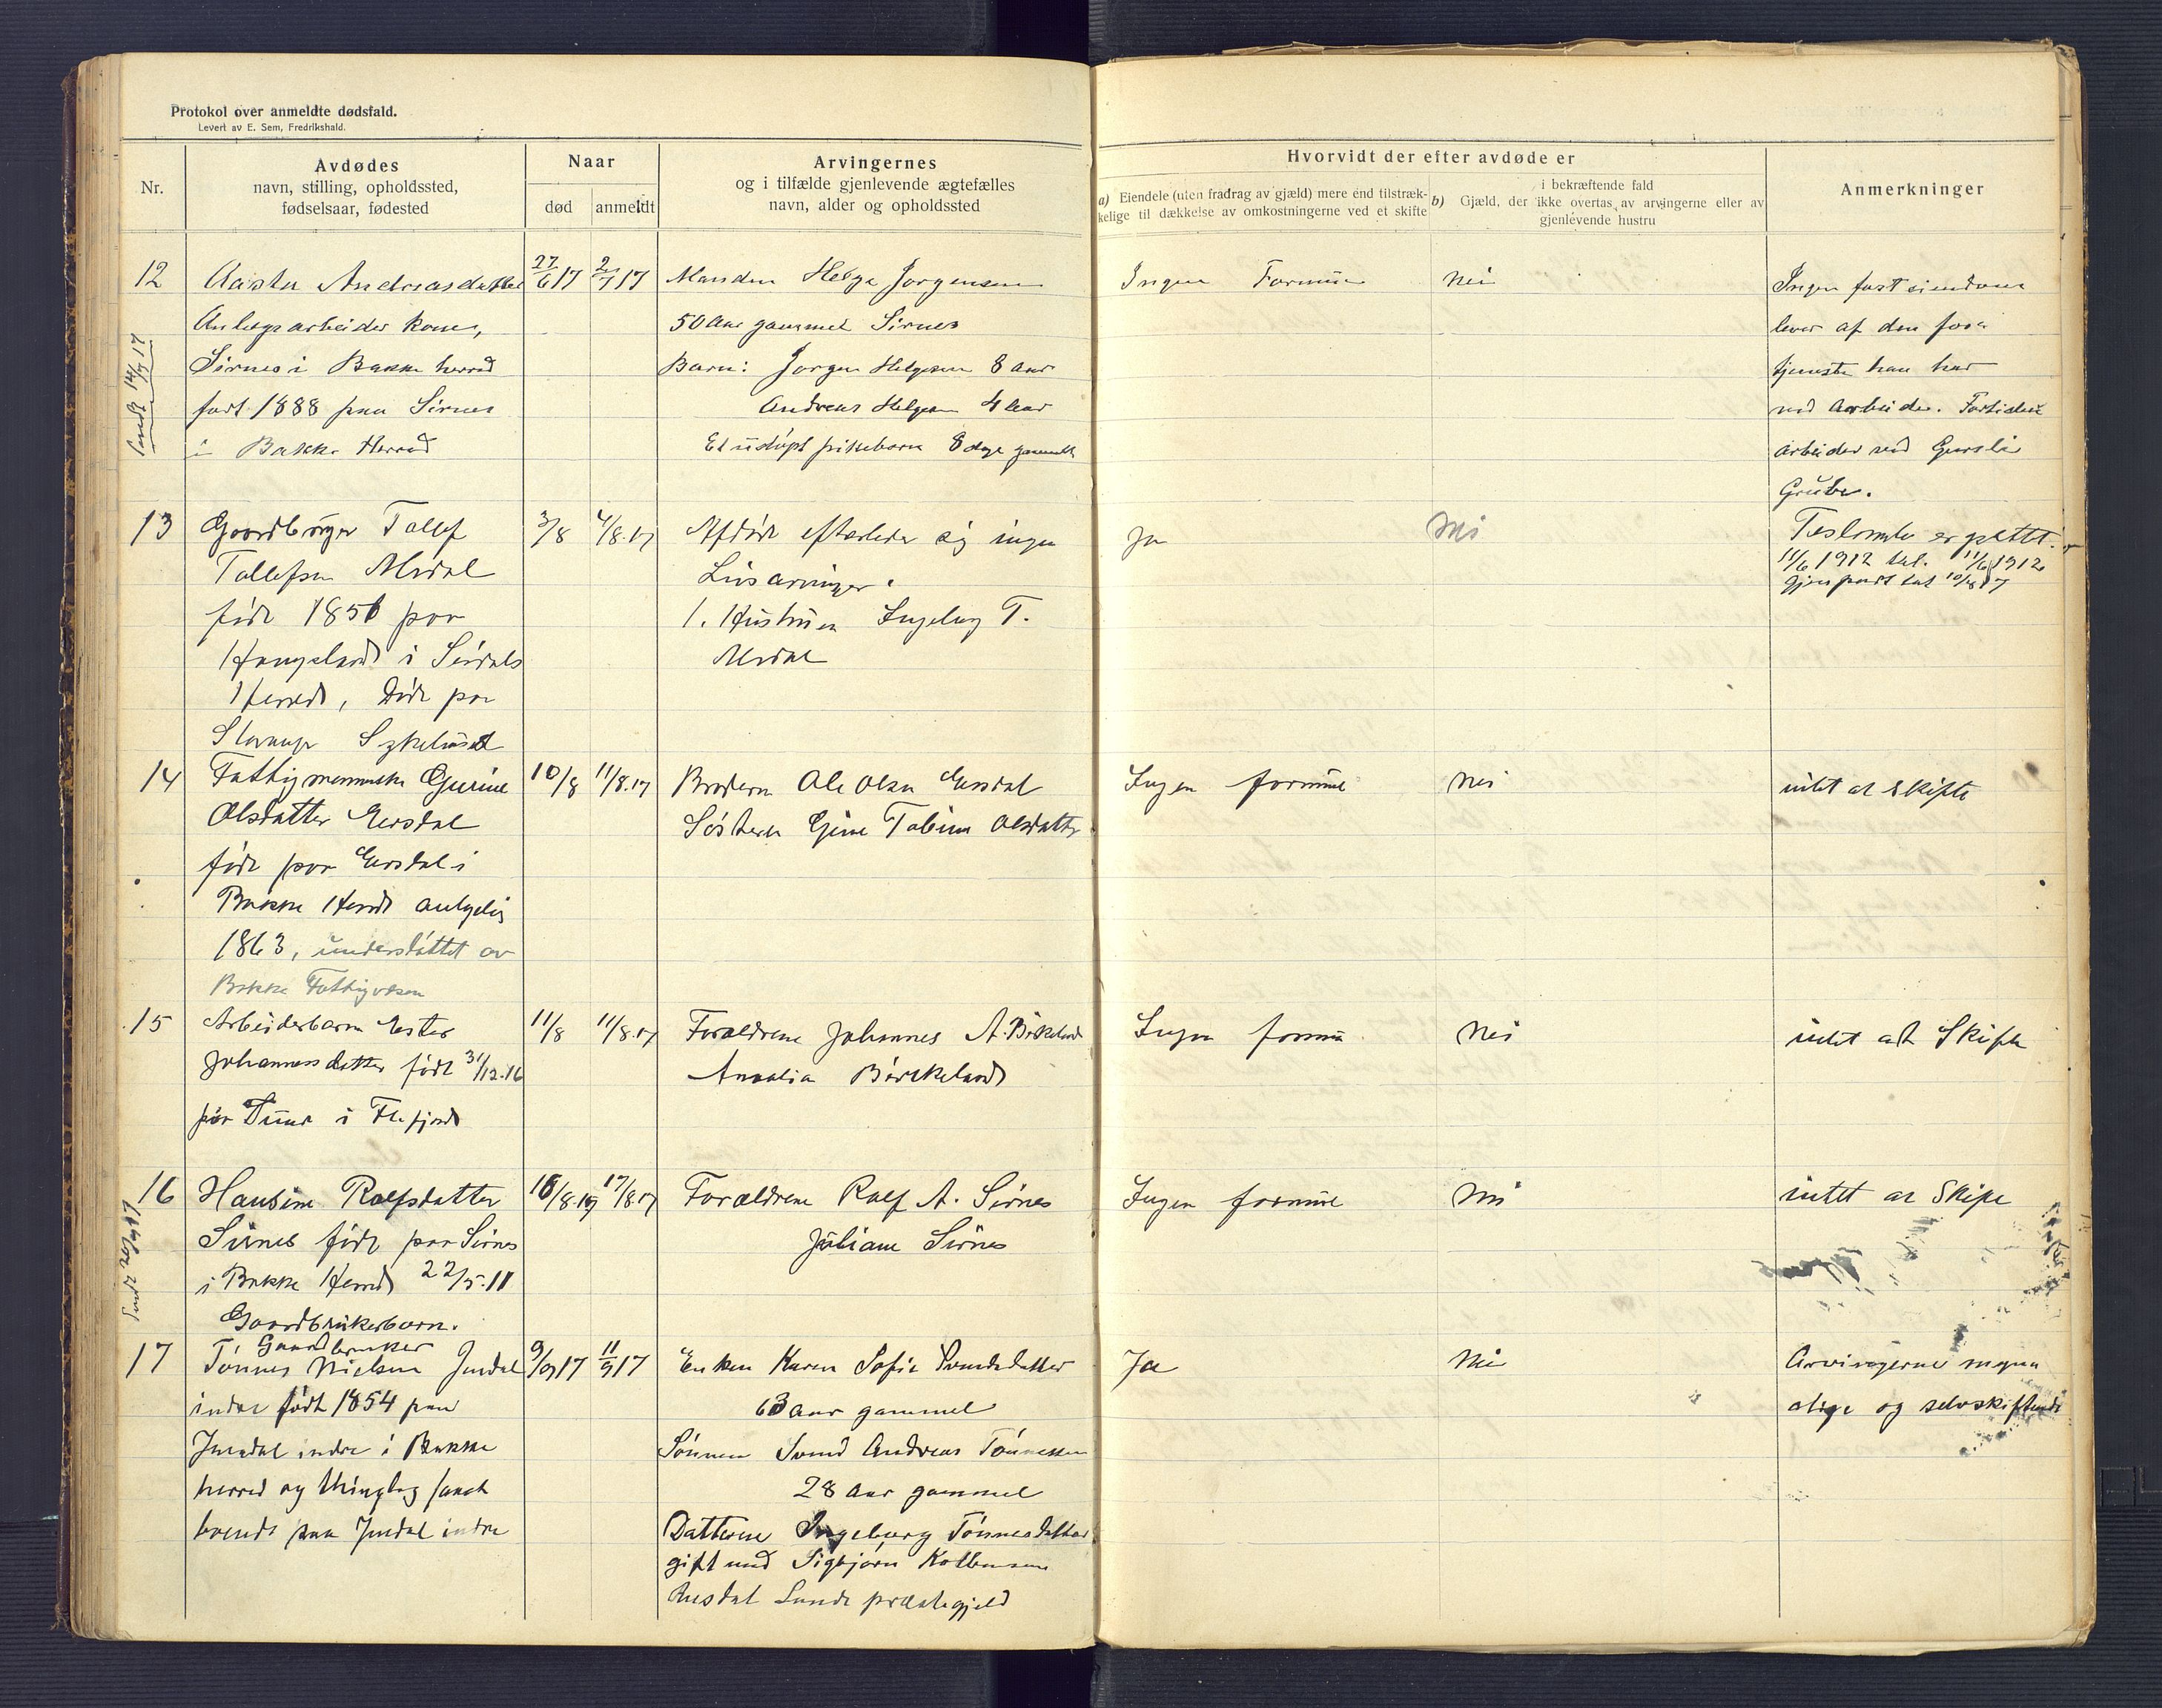 Protokol over anmeldte dødsfald.
Levert av E. Sem, Fredrikshald.
Nr.
Avdødes
navn, stilling, opholdssted,
fødselsaar, fødested
Naar
død
anmeldt
Arvingernes
og i tilfælde gjenlevende ægtefælles
navn, alder og opholdssted
Hvorvidt der efter avdøde er
a) Eiendele (uten fradrag av gjæld) mere end tilstræk-
kelige til dækkelse av omkostningerne ved et skifte
i bekræftende fald
b) Gjæld, der ikke overtas av arvingerne eller av
gjenlevende hustru
Anmerkninger
12
Aasta Andreasdatter
Anlegsarbeider kone,
Sirnes i Bakke herred
født 1888 paa Sirnes
i Bakke Herred
27/6 17
2/7 17
Manden Helge Jørgensen
50 aar gammel Sirnes
Barn: Jørgen Helgesen 8 aar
Andreas Helgesen 4 aar
Et udøpt pikebarn 8 dage gammelt
Ingen Formue
Nei
Ingen fast eiendom
lever af den for-
tjeneste han har
ved arbeider. Fortiden
arbeider ved Gursli
Grube.
13
Gaardbruger Tollef
Tollefsen Mydal
født 1856 paa
Haugeland i Sirdals
Herred, død paa
Sykehuset
3/8
4/8.17
Afdøde efterlader sig ingen
Livsarvinger.
1. Hustruen Ingeborg T.
Ja
Nei
11/6 1912
11/6 1912
10/8 17
14
Fattigmenneske Gurine
Olsdatter Eersdal
født paa Eersdal i
Bakke Herred antagelig
1863, understøttet av
Bakke Fattigvæsen
10/8
11/8.17
Broderen Ole Olsen Eersdal
Søsteren Gine Tobine Olsdatter
Ingen formue
Nei
intet at skifte
15
Arbeiderbarn Ester
Johannesdatter født 31/12.16
paa i Flefjord
11/8
11/8.17
Forældrene Johannes A. Birkeland
Amalia Birkeland
Ingen formue
Nei
intet at Skifte
16
Hansine Rolfsdatter
Sirnes født paa Sirnes
i Bakke Herred 22/5.11
Gaardbrukerbarn.
16/8.17
17/8.17
Forældrene Rolf A. Sirnes
Juliane Sirnes
Ingen formue
Nei
intet at Skifte
17
Gaardbruker
Tønnes Nielsen Josdal
indre født 1854 paa
Josdal indre i Bakke
herred og thinglag samt
boende paa Josdal indre
9/9 17
11/9 17
Enken Karen Sofie Svendsdatter
63 aar gammel
Sønnen Svend Andreas Tønnessen
28 aar gammel
Datteren Ingeborg Tønnesdatter
gift med Sigbjørn Kolbensen
Lunde præstegjeld
Ja
Nei
Arvingerne myn-
dige og selvskiftende